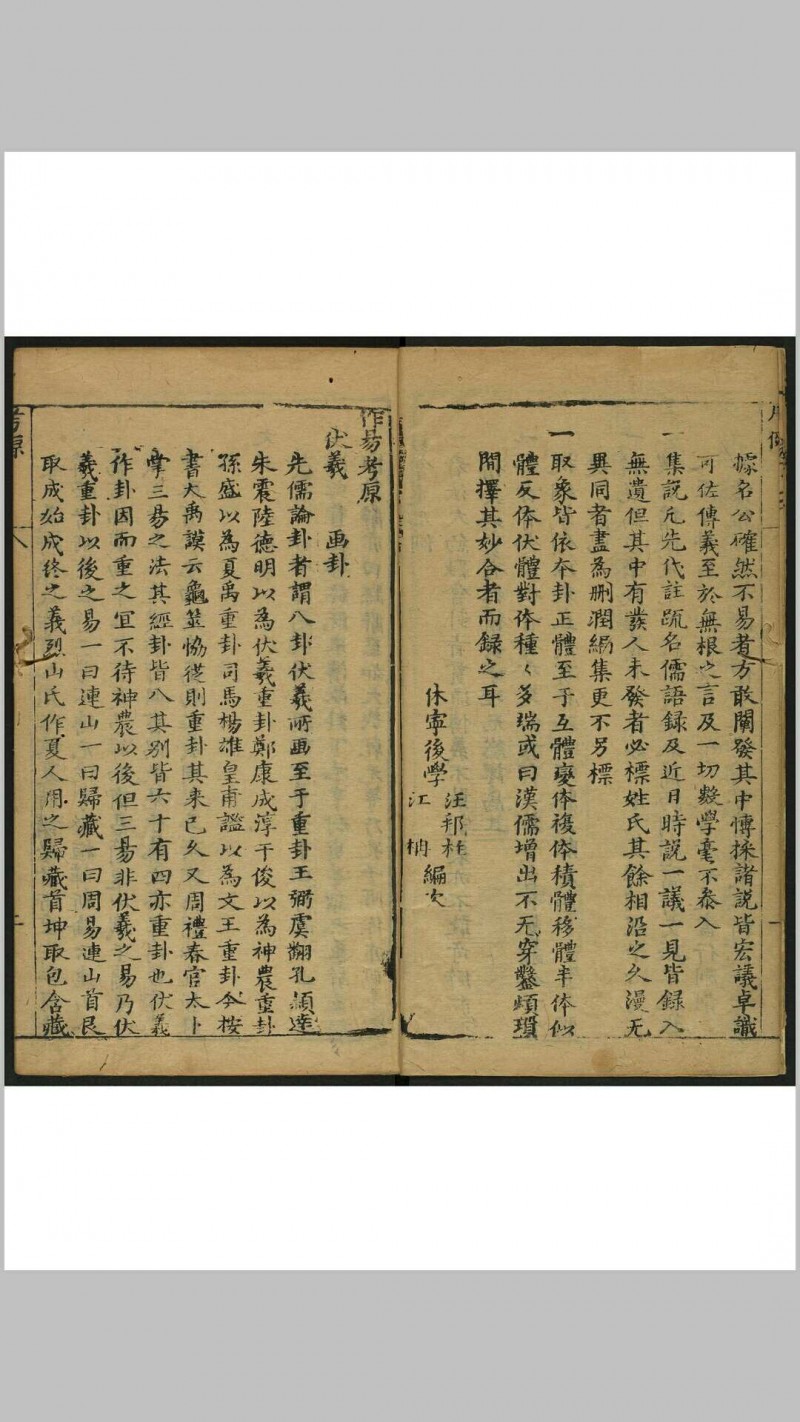 據名公確然不易者方敢闡發其中博採諸說皆宏議卓識
可佐傳義至於無根之言及一切數學毫不叅入
一集說凡先代註䟽名儒語錄及近日時說一議一見皆錄入
無遺但其中有發人未發者必標姓氏其餘相沿之久漫无
異同者盡為刪潤編集更不另標
一取象皆依夲卦正體至于互體變体複体積體移體半体似
體反体伏體對体種〻多瑞或曰漢儒增出不无穿鑿煩瑣
間擇其妙合者而録之耳
休寧後學
汪邦柱
江柟
編次
作易考原
伏羲 画卦
先儒論卦者謂八卦伏羲所画至于重卦王弼虞翻孔頴達
朱震陸德明以為伏羲重卦鄭康成淳于俊以為神農重卦
孫盛以為夏禹重卦司馬楊雄皇甫謐以為文王重卦今按
書大禹謨云龜筮恊從則重卦其来已久又周禮春官太卜
掌三易之法其經卦皆八其别皆六十有四亦重卦也伏羲
作卦因而重之冝不待神農以後但三易非伏羲之易乃伏
羲重卦以後之易一曰連山一曰歸藏一曰周易連山首艮
取成始成終之義烈山氏作夏人用之歸藏首坤取包含藏
考原
八